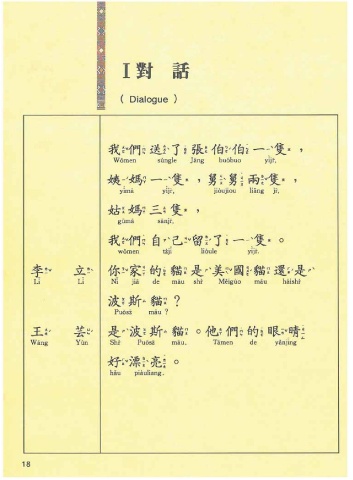 I 對 話
( Dialogue )
我們送了張伯伯一隻，
Wǒmen sùngle Jāng buóbuo yìjr,
姨媽一隻，舅舅兩隻，
yímā yìjr, jiòujiou liǎng jr,
姑媽三隻，
gūmā sānjr,
我們自己留了一隻。
wǒmen tzjǐ lióule yìjr.
李 立 你家的貓是美國貓還是
Lǐ Lì Nǐ jiā de māu shr̀ Měiguó māu háishr̀
波斯貓？
Puōsz māu ?
王 芸 是波斯貓。他們的眼睛
Wáng Yún Shr̀ Puōsz māu. Tāmen de yǎnjing
好漂亮。
hǎu piàuliang.
18